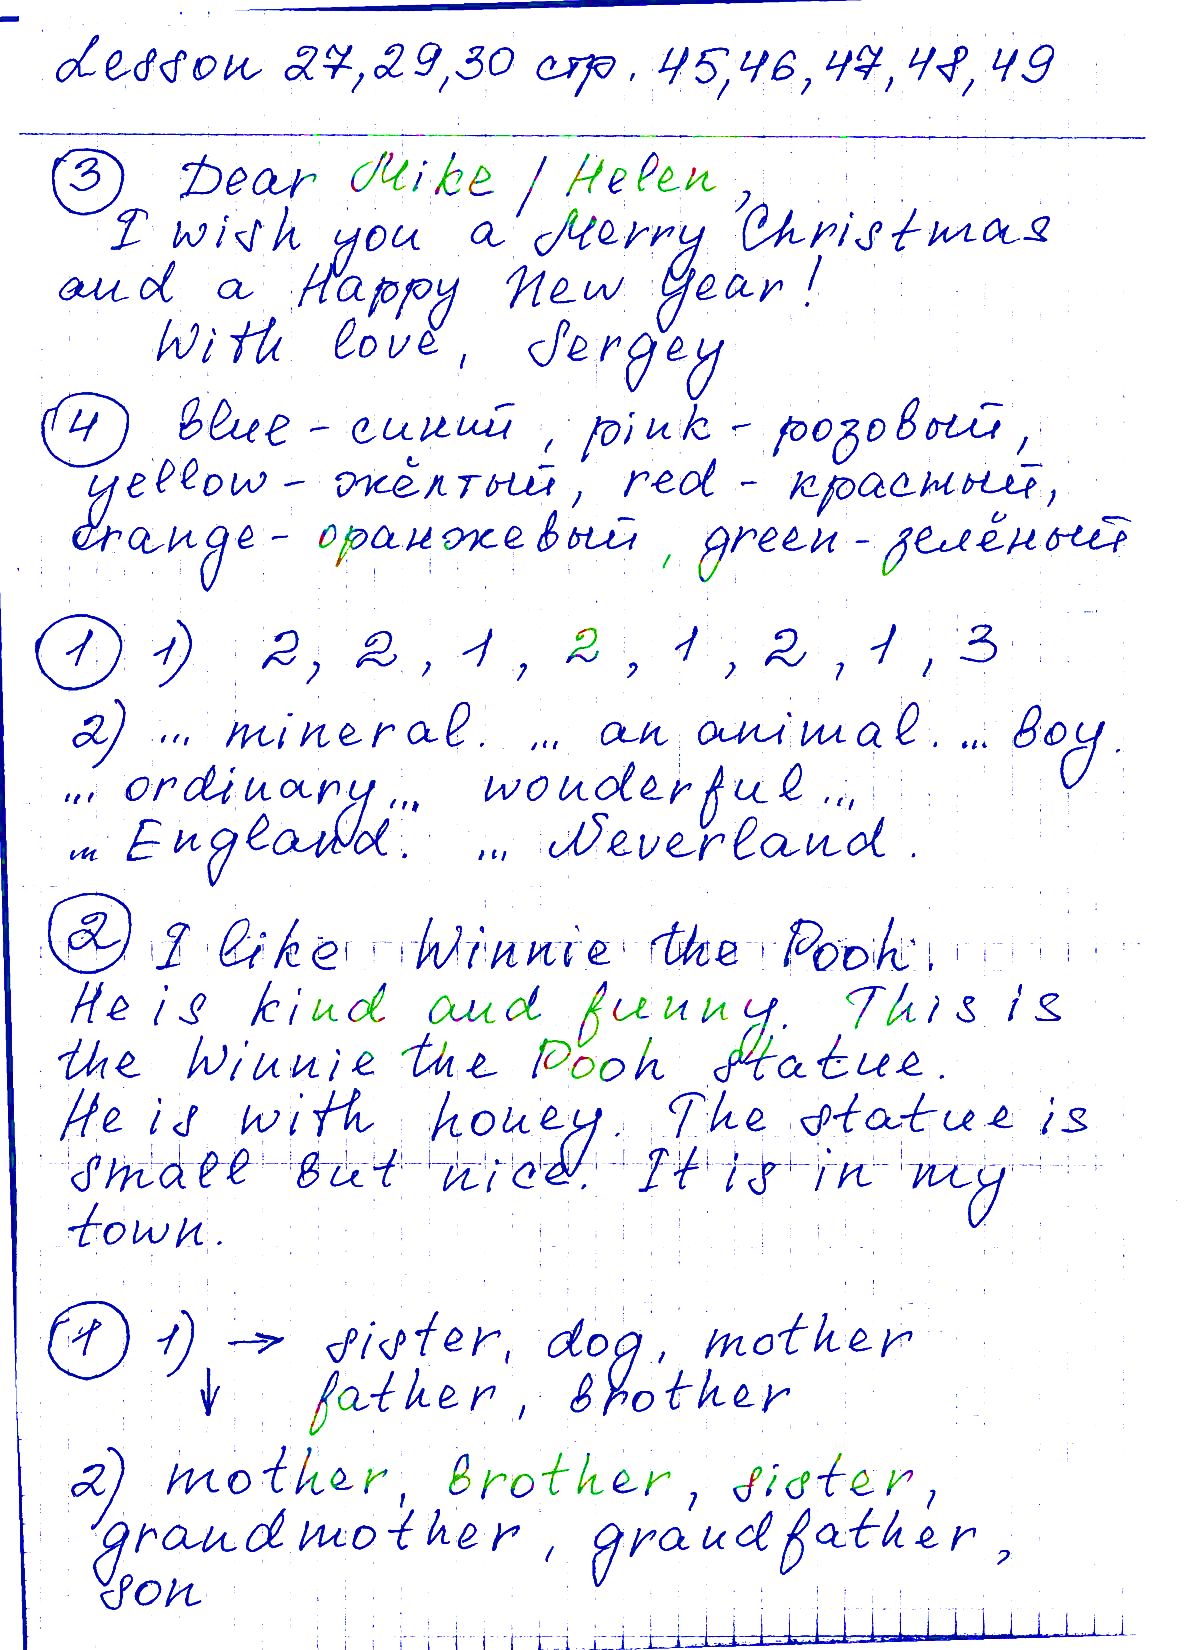 Lesson 27, 29, 30 стр. 45, 46, 47, 48, 49
3 Dear Mike / Helen,
I wish you a Merry Christmas
and a Happy New Year!
With love, Sergey
4 blue - синий, pink - розовый,
yellow - жёлтый, red - красный,
orange - оранжевый, green - зелёный
1 1) 2, 2, 1, 2, 1, 2, 1, 3
2) ... mineral. ... an animal. ... boy.
... ordinary ... wonderful ...
... England. ... Neverland.
2 I like Winnie the Pooh.
He is kind and funny. This is
the Winnie the Pooh statue.
He is with honey. The statue is
small but nice. It is in my
town.
1 1) → sister, dog, mother
↓ father, brother
2) mother, brother, sister,
grandmother, grandfather,
son